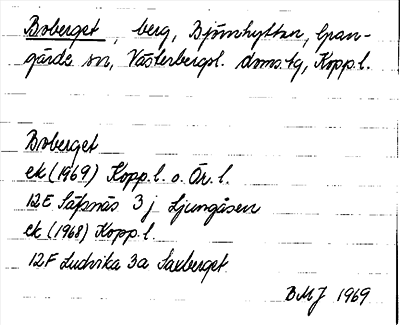 Boberget, berg, Björnhyttan, Gran-
gärde sn, Västerbergsl. doms.tg, Kopp.l.
Boberget
ek (1969) Kopp.l. o. Ör.l.
12E Säfsnäs 3 j Ljungåsen
ek (1968) Kopp.l.
12F Ludvika 3a Saxberget
BMJ 1969